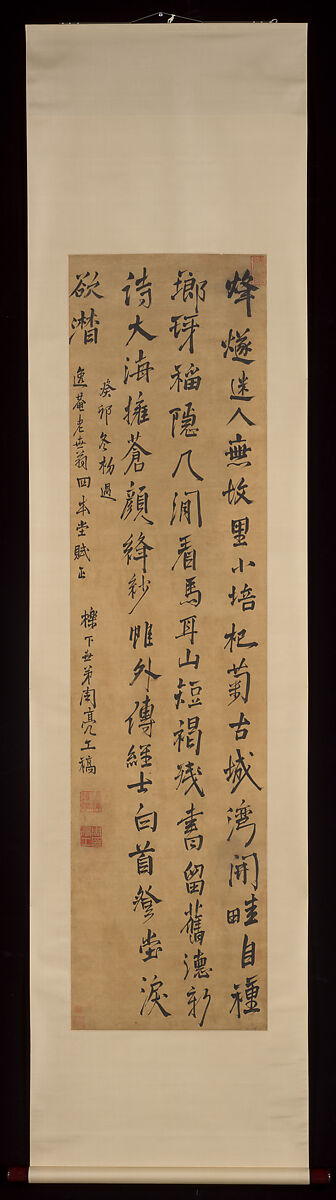 烽燧迷人無故里小培杞菊古城灣開畦自種
瑯琊稻隱几閒看馬耳山短褐殘書留舊德新
詩大海擁蒼顏絳紗帷外傳經士白首登堂淚
欲潸
癸卯冬杪過
逸菴老世翁四本堂賦正
櫟下世弟周亮工稿